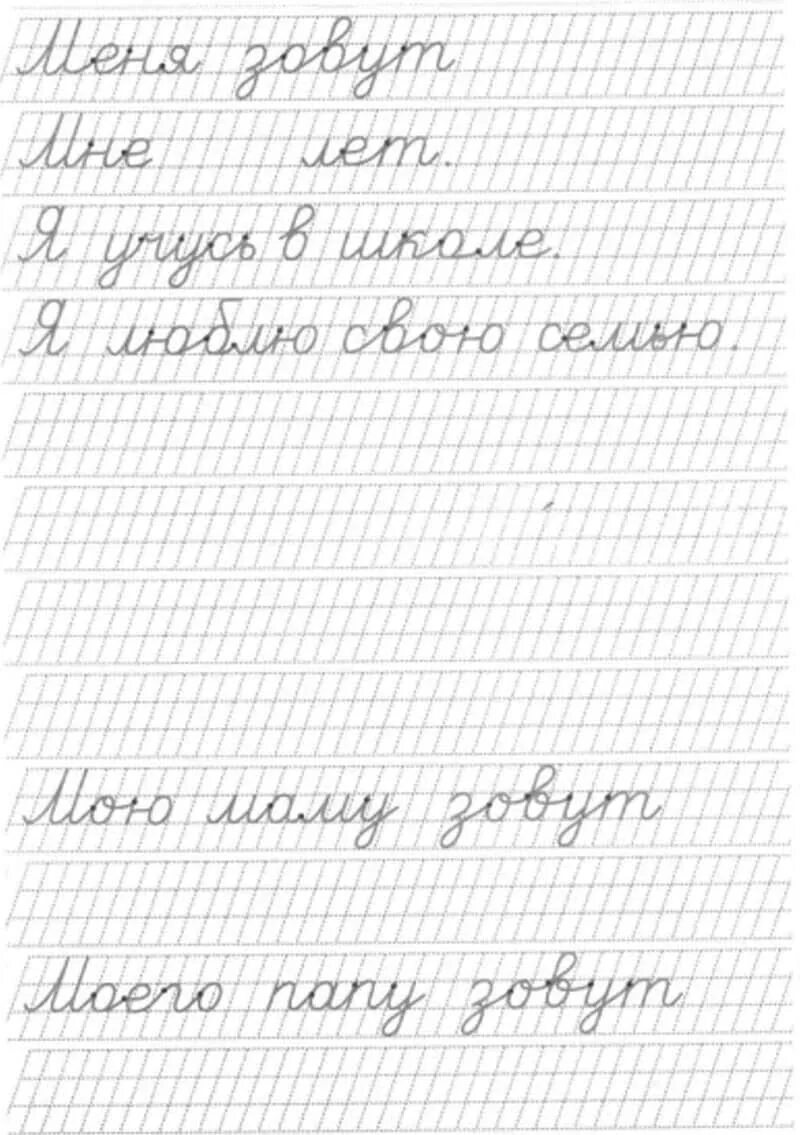 Меня зовут
Мне лет.
Я учусь в школе.
Я люблю свою семью.
Мою маму зовут
Моего папу зовут